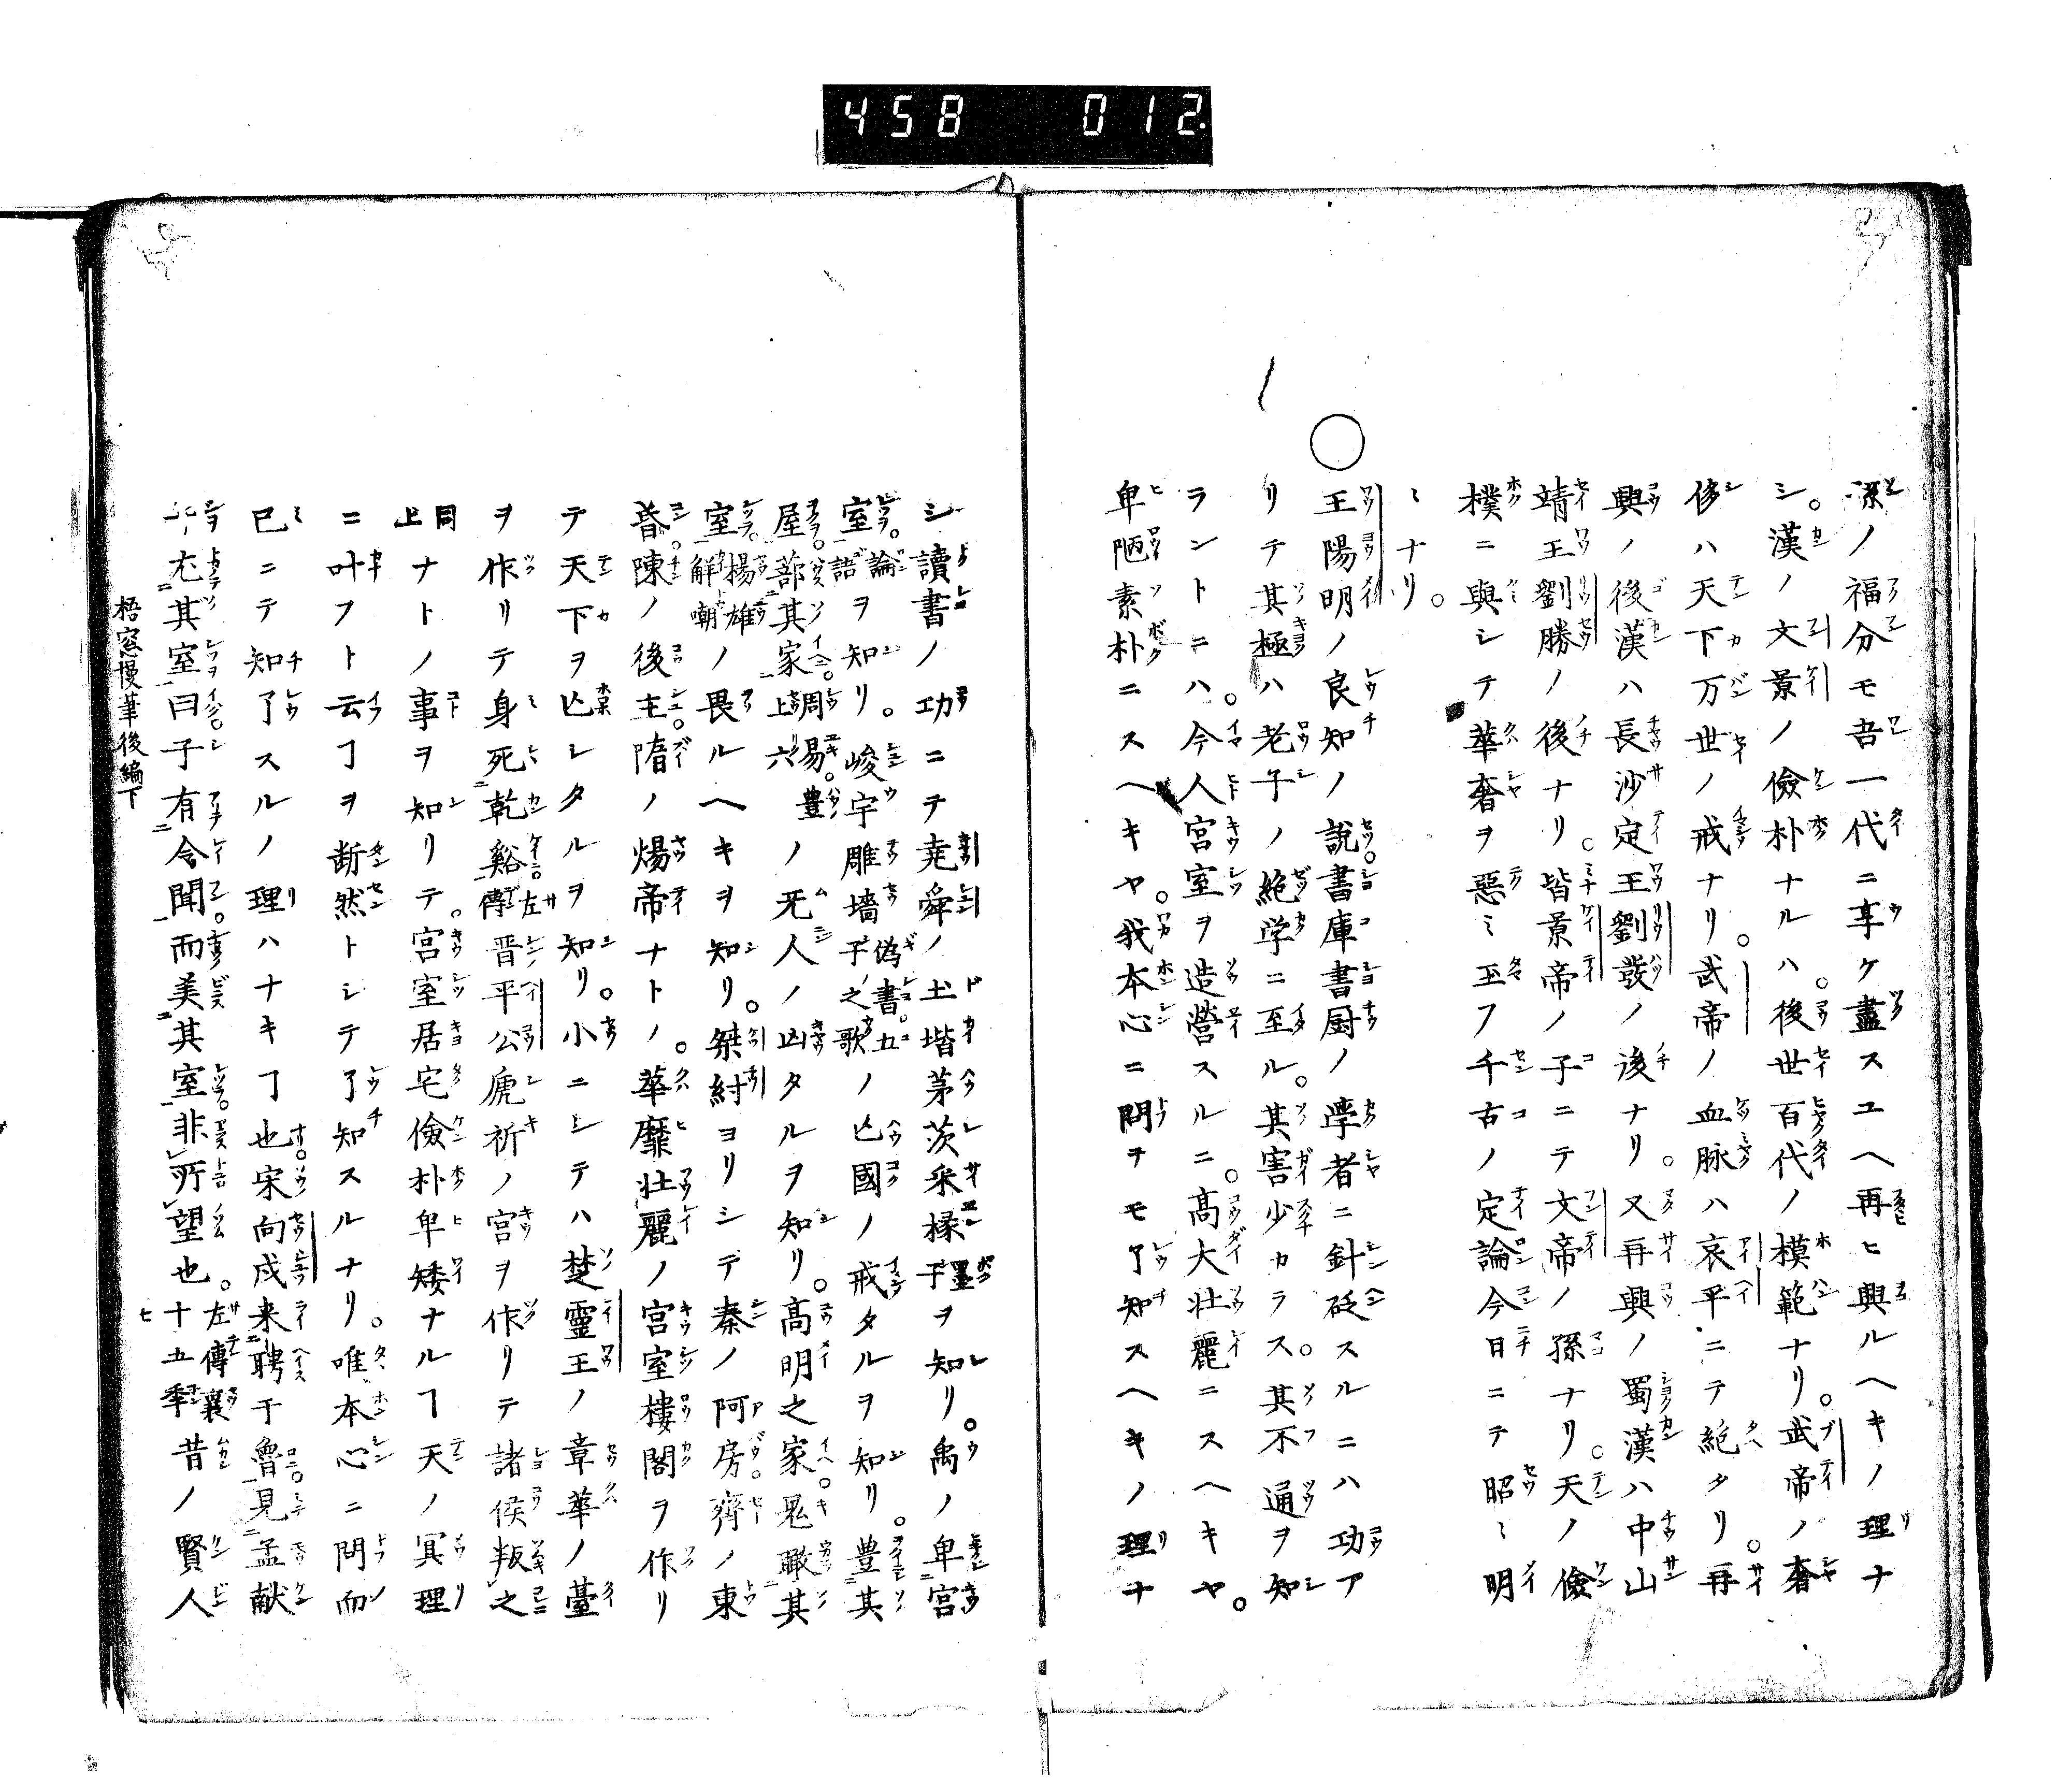 458 012
孫ノ福分モ吾一代ニ享ケ盡スユヘ再ヒ興ルヘキノ理ナ
シ。漢ノ文景ノ儉朴ナルハ。後世百代ノ模範ナリ。武帝ノ奢
侈ハ天下万世ノ戒ナリ。武帝ノ血脉ハ哀平ニテ絶タリ。再
興ノ後漢ハ長沙定王劉發ノ後ナリ。又再興ノ蜀漢ハ中山
靖王劉勝ノ後ナリ。皆景帝ノ子ニテ文帝ノ孫ナリ。天ノ儉
樸ニ與シテ華奢ヲ惡ミ玉フ千古ノ定論今日ニテ昭ミ明
ミナリ。
○王陽明ノ良知ノ說。書庫書厨ノ學者ニ針砭スルニハ功ア
リテ其極ハ老子ノ絶学ニ至ル。其害少カラス。其不通ヲ知
ラントニハ。今人宮室ヲ造營スルニ。高大壮麗ニスヘキヤ。
卑陋素朴ニスヘキヤ。我本心ニ問ヲモ了知スヘキノ理ナ
シ讀書ノ功ニテ堯舜ノ土堦茅茨采椽墨子ヲ知リ。禹ノ卑宮
室。論語ヲ知リ。峻宇雕墻偽書。五子之歌ノ亡國ノ戒タルヲ知リ。豊其
屋。蔀其家。周易。豊上六ノ无人ノ凶タルヲ知リ。高明之家。鬼瞰其
室。楊雄解嘲ノ畏ルヘキヲ知リ。桀紂ヨリシテ秦ノ阿房。齊ノ東
昏。陳ノ後主。隋ノ煬帝ナトノ。華靡壮麗ノ宮室樓閣ヲ作リ
テ天下ヲ亡シタルヲ知リ。小ニシテハ楚靈王ノ章華ノ臺
ヲ作リテ身死乾谿。左傳晋平公虒祈ノ宮ヲ作リテ諸侯叛之
同上ナトノ事ヲ知リテ。宮室居宅儉朴卑矮ナルヿ天ノ冥理
ニ叶フト云ヿヲ断然トシテ了知スルナリ。唯本心ニ問而
已ニテ知了スルノ理ハナキヿ也宋向戌来聘于魯。見孟献
子。尤其室曰子有令聞。而美其室。非所望也。左傳襄十五年昔ノ賢人
梧窓慢筆後編下 七